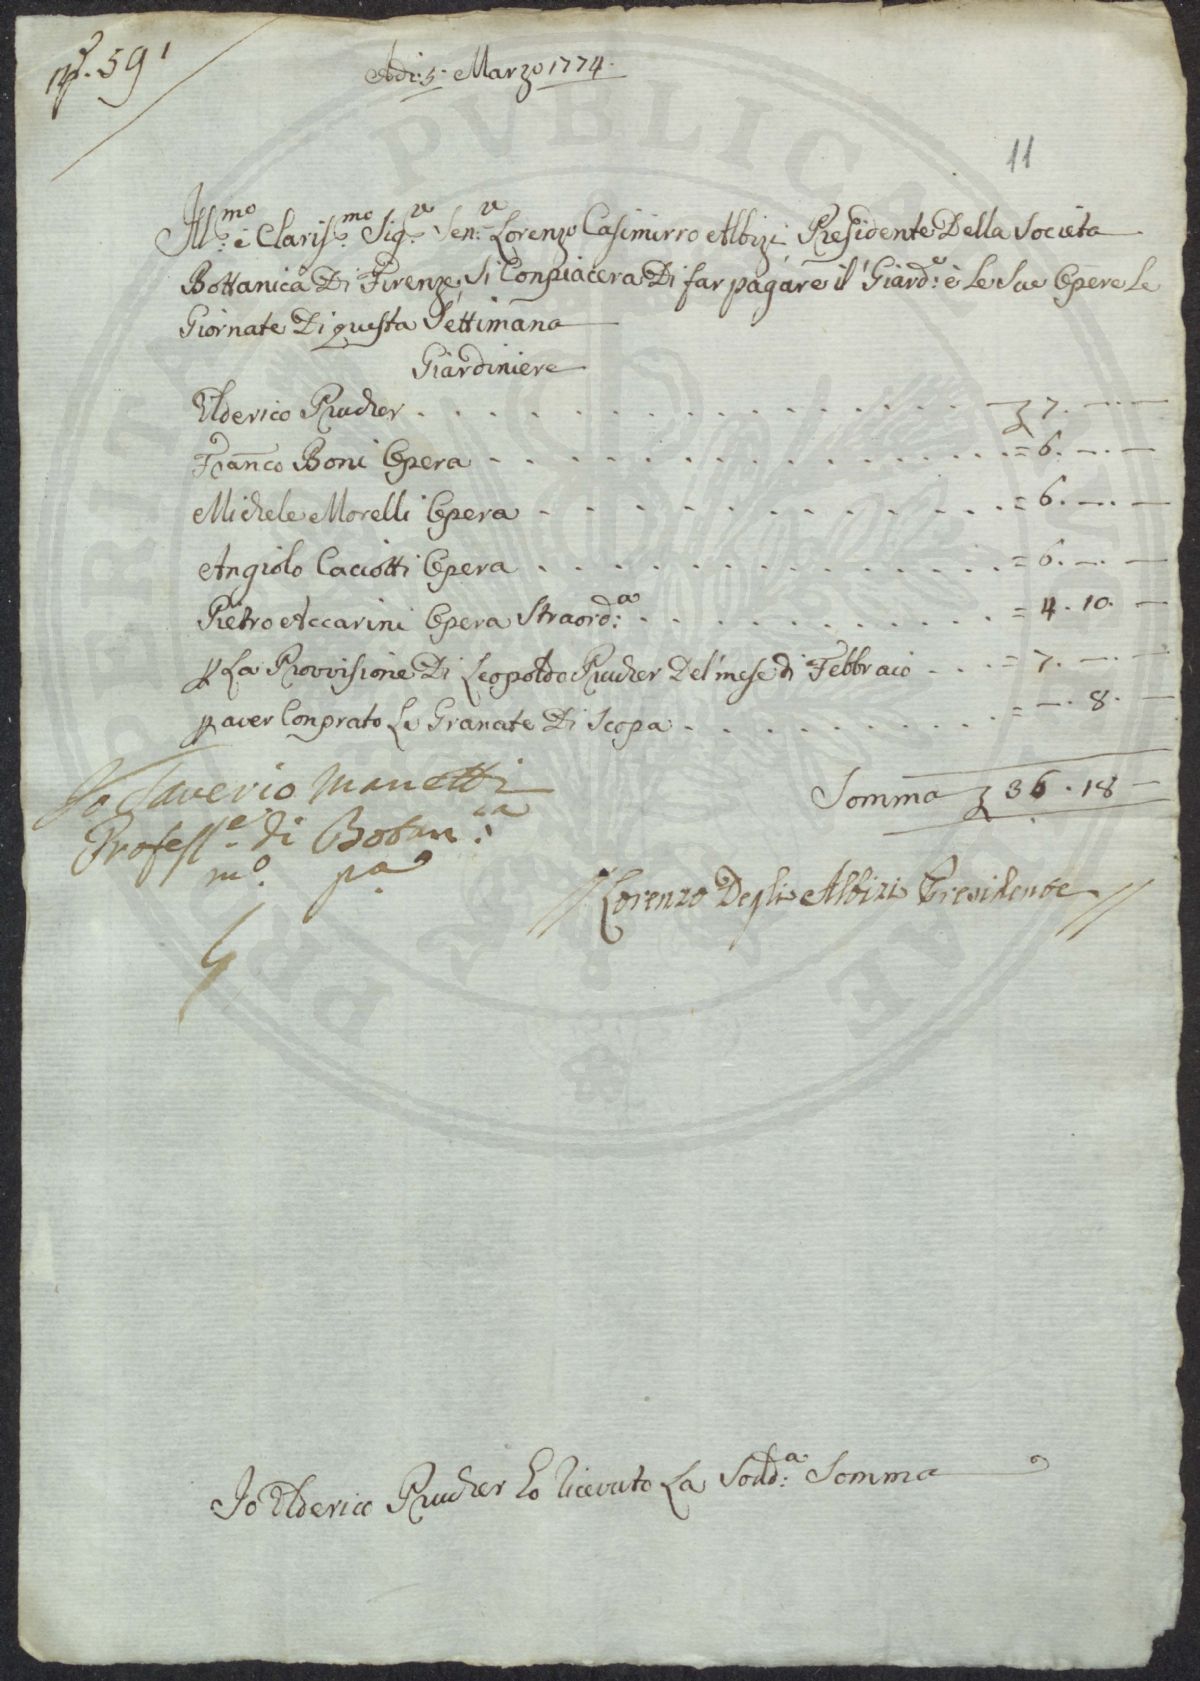 N.º 59
Adi: 5: Marzo 1774.
11
Ill.mo è Claris.mo Sig.re Sen.re Lorenzo Casimirro Albizi Presidente Della Societa
Bottanica Di Firenze, Si Conpiacera Di far pagare il Giard.e è Le Sue Opere Le
Giornate Di questa Settimana
Giardiniere
Ulderico Prucher . . . . . . . . . . . . . 7. —. —
Franco Boni Opera . . . . . . . . . . . . = 6. —. —
Michele Morelli Opera . . . . . . . . . . = 6. —. —
Angiolo Caciotti Opera . . . . . . . . . . = 6. —. —
Pietro Accarini Opera Straord:a . . . . . . . . . = 4. 10. —
p La Provvisione Di Leopoldo Prucher Del mese di Febbraio . . . = 7. —. —
p aver Conprato Le Granate Di Scopa . . . . . . . . = —. 8. —
Somma 36. 18 —
Io Saverio Manetti
Profess.e di Botan:ca
m.o pa
// Lorenzo Degli Albizi Presidente //
Io Ulderico Prucher ho Ricevuto La Sodd:a Somma
PUBLICAE
PROSPERITATI